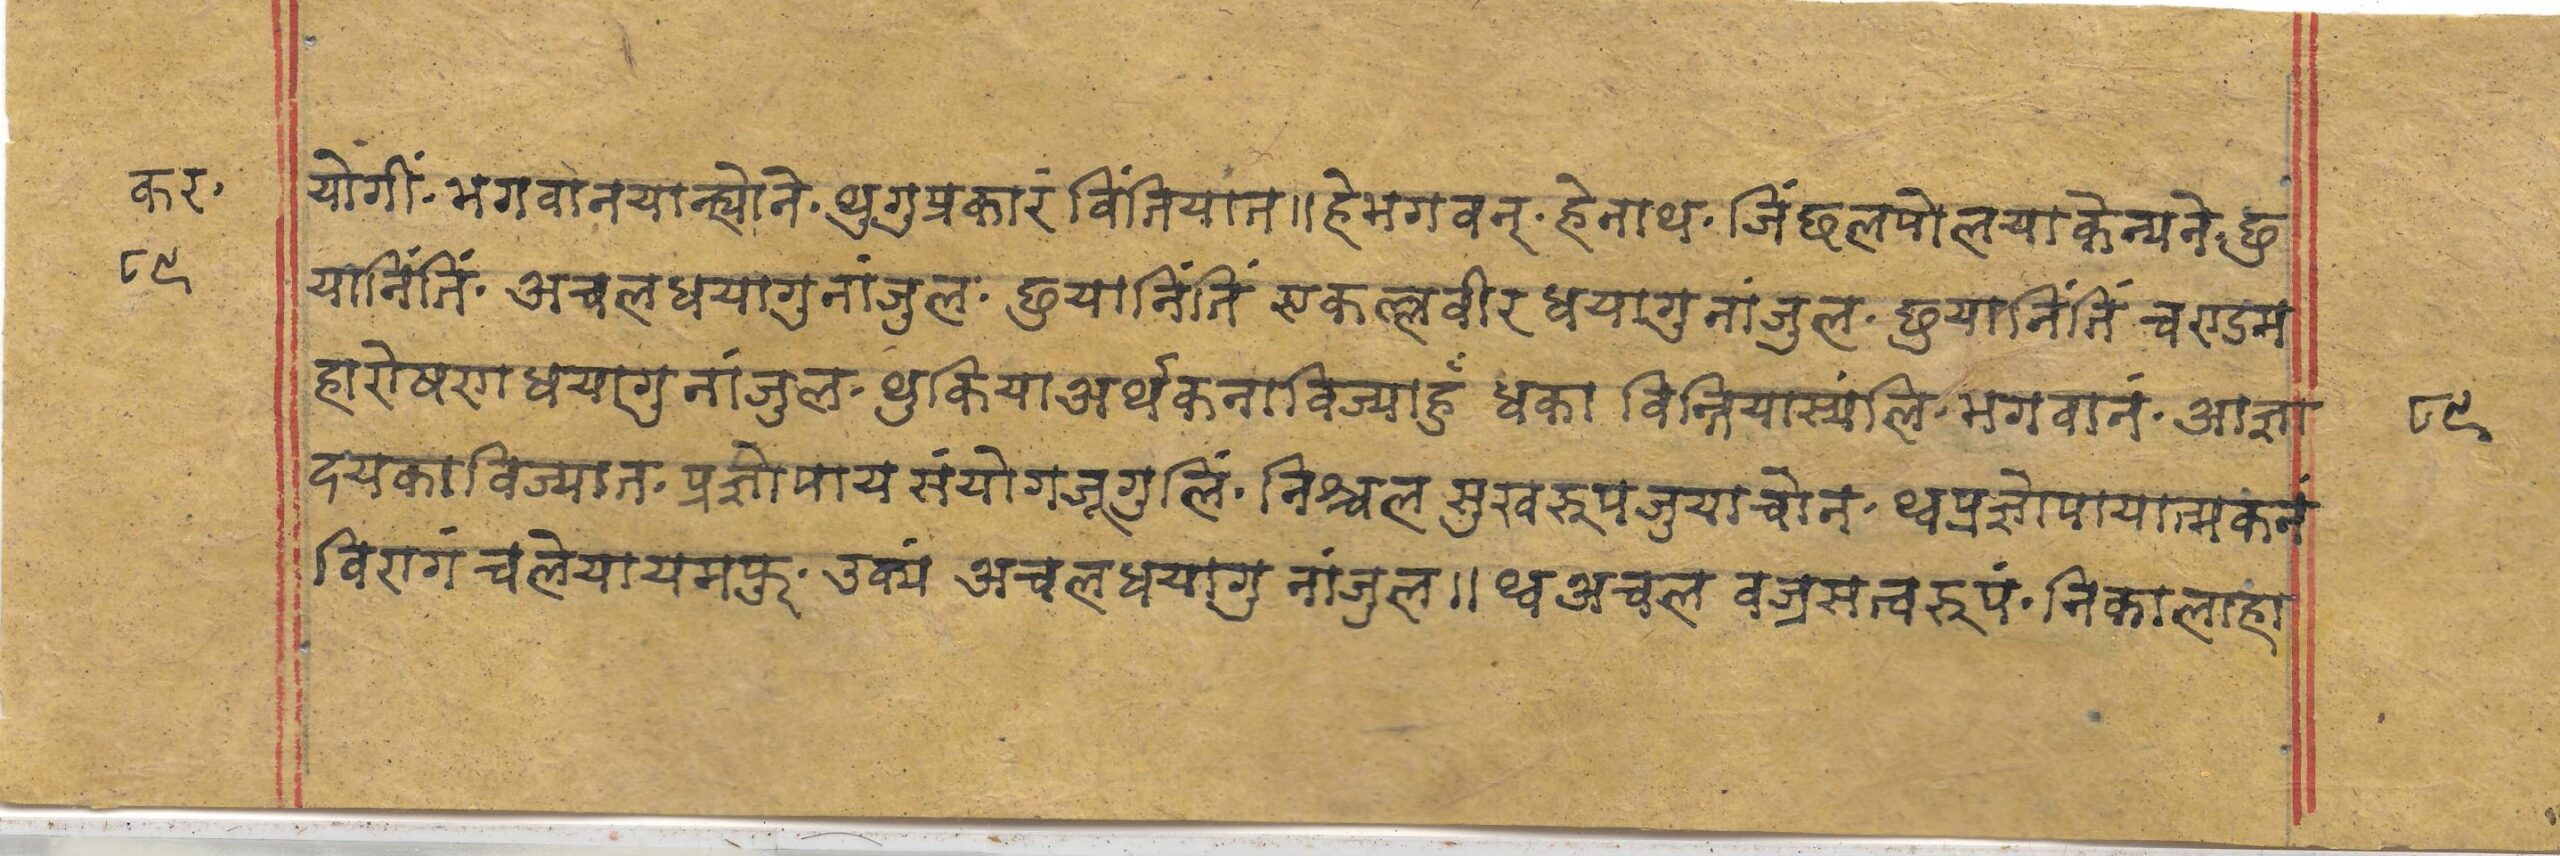 कर॰
८९
योगीं॰ भगवानयान्ह्योने॰ थुगुप्रकारं विंतियात॥ हेभगवन्॰ हेनाथ॰ जिंछलपोलयाकेन्यने॰ छु
यानिंतिं॰ अचलधयागुनांजुल॰ छुयानिंतिं एकल्लवीरधयागुनांजुल॰ छुयानिंतिं चण्डम
हारोषणधयागुनांजुल॰ थुकियाअर्थकनाविज्याहुँ धका विन्तियास्यंलि॰ भगवानं॰ आज्ञा
दयकाविज्यात॰ प्रज्ञोपायसंयोगजूगुलिं॰ निश्चलसुखरूपजुयाचोन॰ थ्वप्रज्ञोपायात्मकनं
विरागं चलेयायमफु॰ उक्यं अचलधयागु नांजुल॥ थ्वअचल वज्रसत्वरूपं॰ निकालाहा
८९